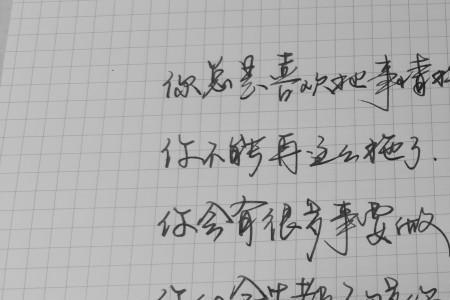 你总是喜欢把事情拖
你不能再这么拖了.
你会有很多事要做
你